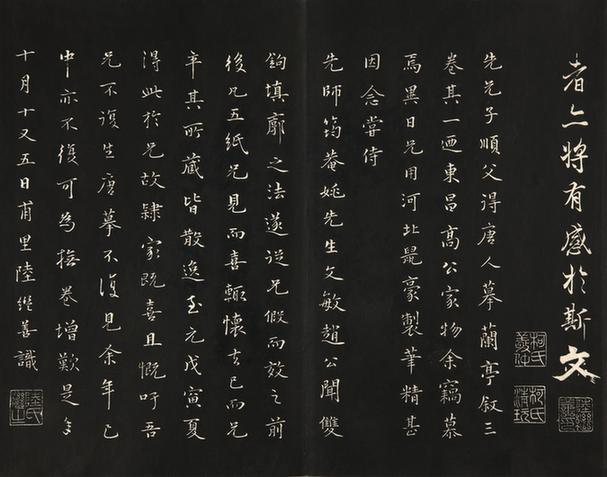 者亦將有感於斯文
先兄子順父得唐人摹蘭亭敘三
卷其一廼東昌高公家物余竊慕
焉異日兄用河北鼠豪製筆精甚
因念嘗侍
先師筠菴姚先生文敏趙公聞雙
鉤填廓之法遂從兄假而效之前
後凡五紙兄見而喜輒懷去已而兄
卒其所藏皆散逸至元戊寅夏
得此於兄故隸家既喜且慨吁吾
兄不復生唐摹不復見余年已
中亦不復可為撫卷增歎是年
十月十又五日甫里陸繼善識
柯氏敬仲
柯氏清玩